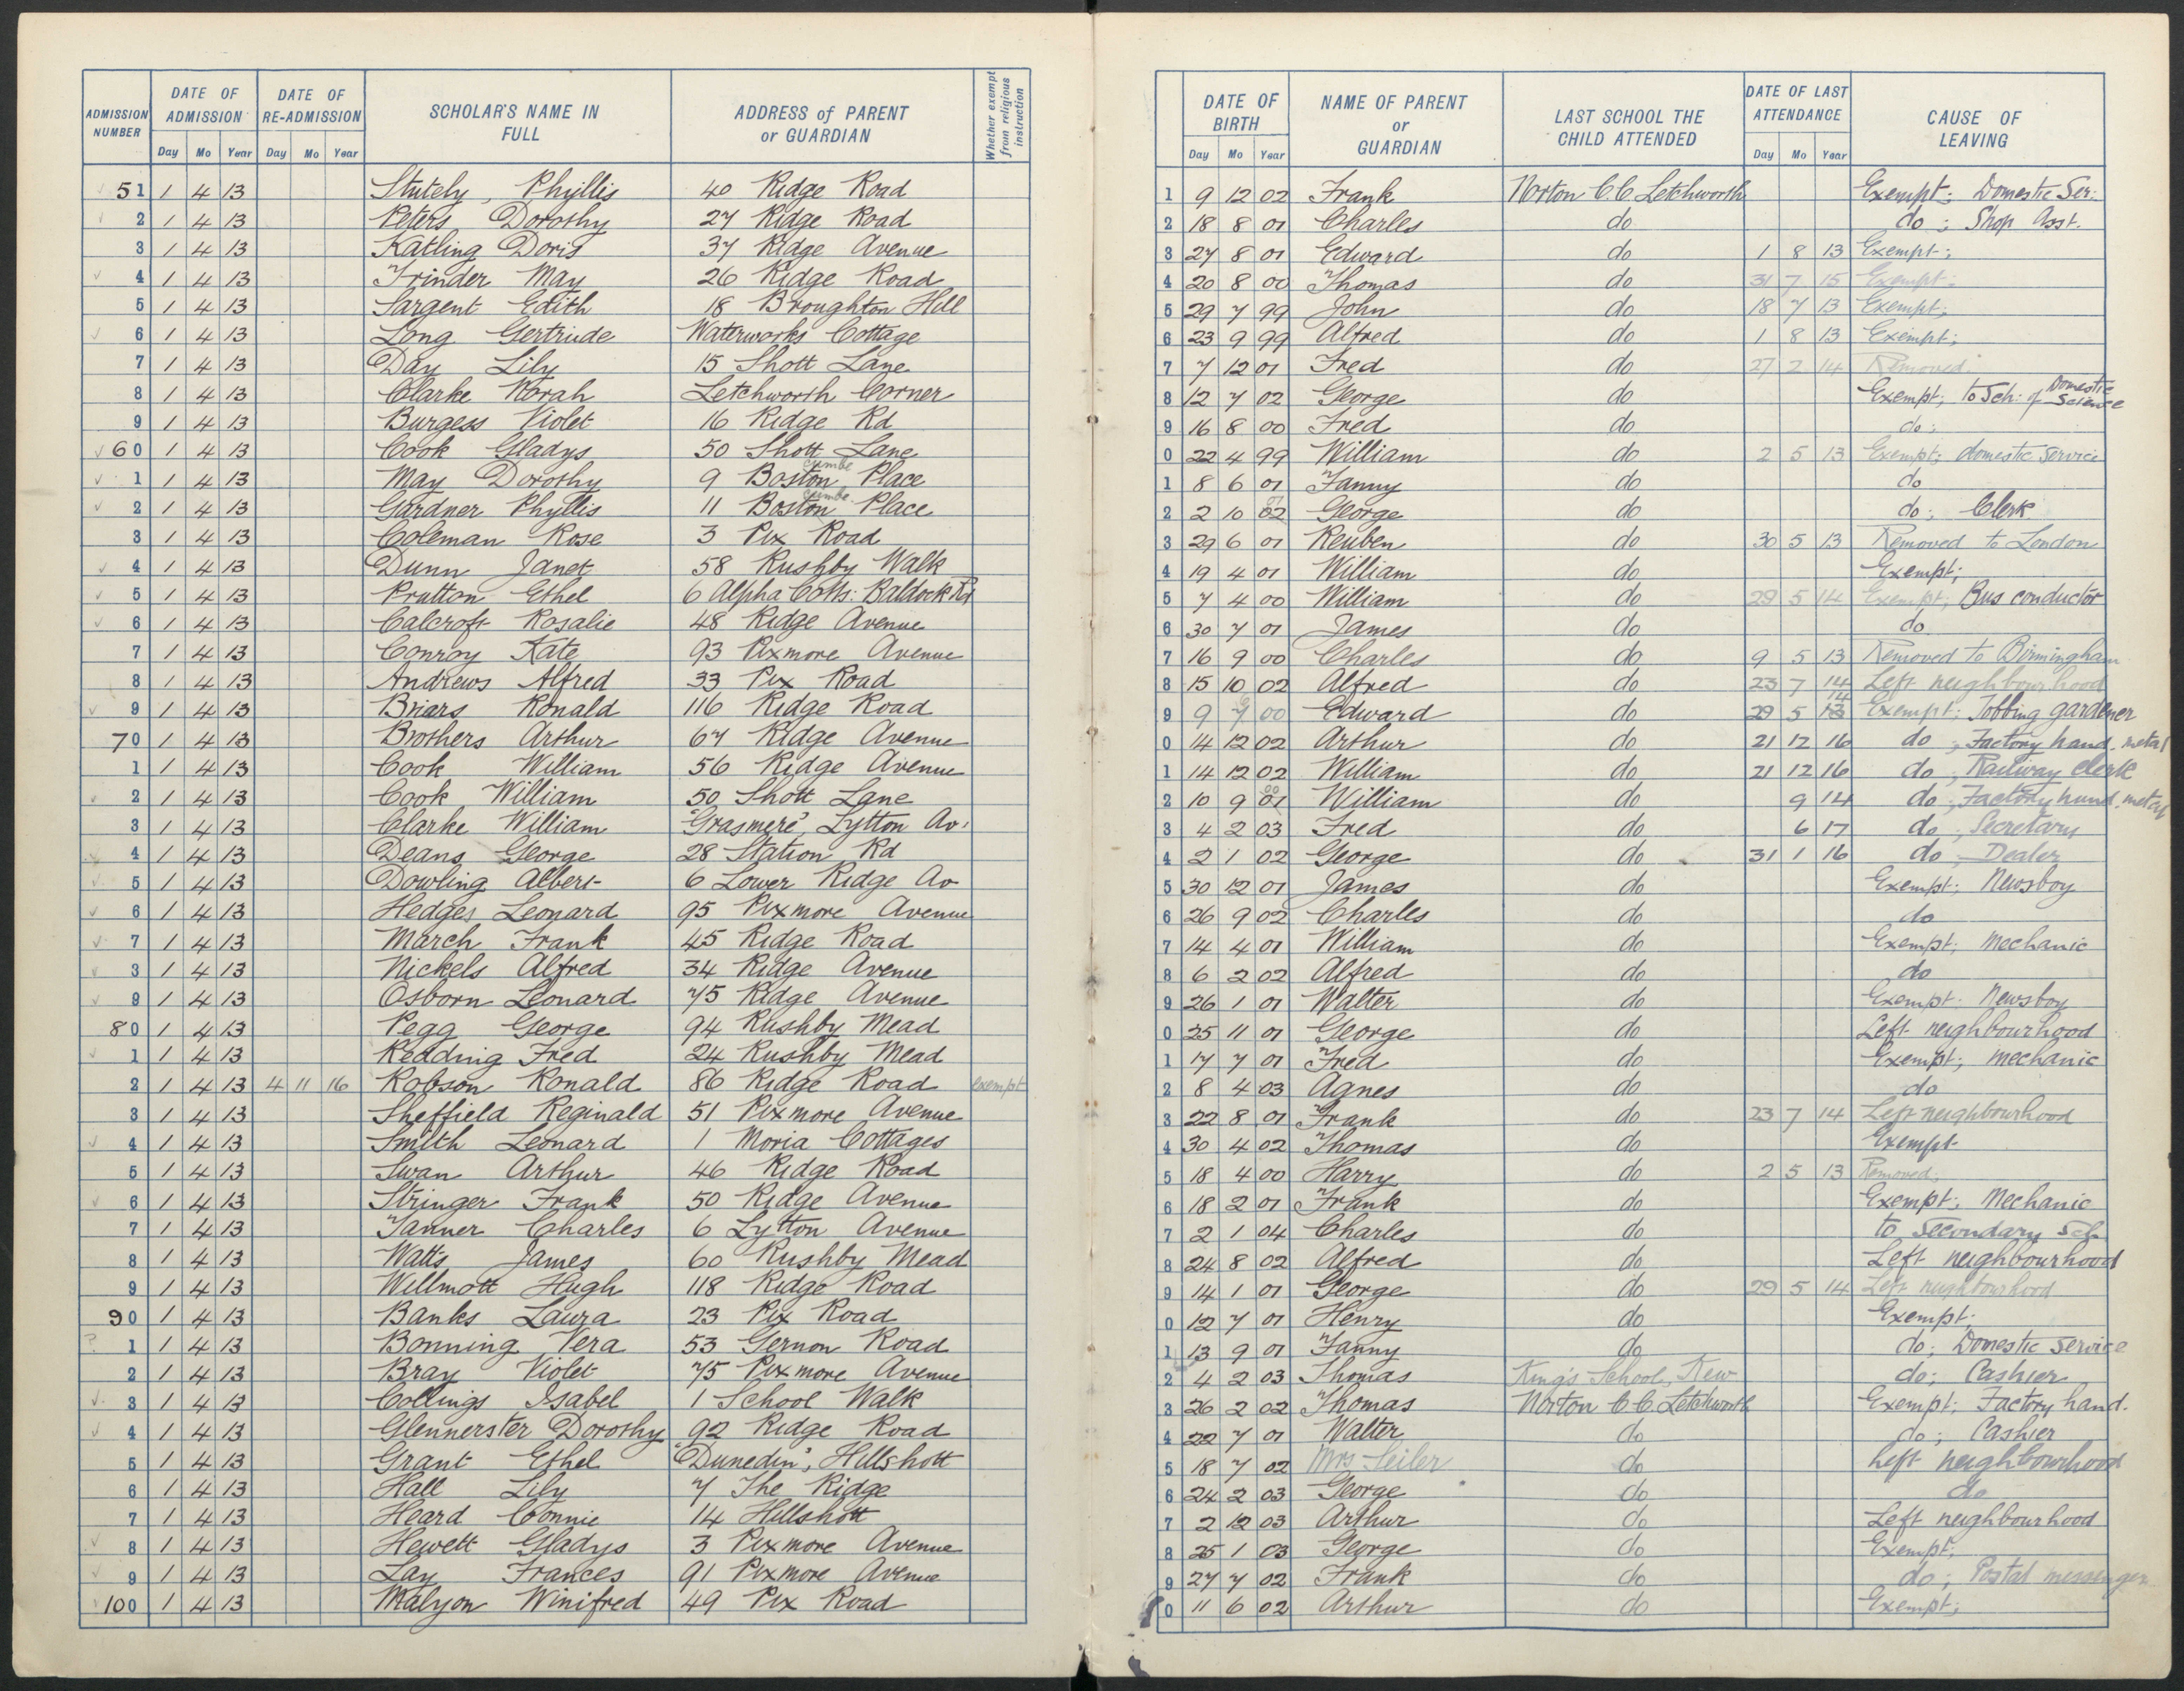 ADMISSION NUMBER | DATE OF ADMISSION Day Mo Year | DATE OF RE-ADMISSION Day Mo Year | SCHOLAR'S NAME IN FULL | ADDRESS of PARENT or GUARDIAN | Whether exempt from religious instruction
51 1 4 13 Stutely, Phyllis 40 Ridge Road
2 1 4 13 Peters Dorothy 27 Ridge Road
3 1 4 13 Katling Doris 37 Ridge Avenue
4 1 4 13 Trinder May 26 Ridge Road
5 1 4 13 Sargent Edith 18 Broughton Hill
6 1 4 13 Long Gertrude Waterworks Cottage
7 1 4 13 Day Lily 15 Shott Lane
8 1 4 13 Clarke Norah Letchworth Corner
9 1 4 13 Burgess Violet 16 Ridge Rd
60 1 4 13 Cook Gladys 50 Shott Lane
1 1 4 13 May Dorothy 9 Boston Place
2 1 4 13 Gardner Phyllis 11 Boston Place
3 1 4 13 Coleman Rose 3 Pix Road
4 1 4 13 Dunn Janet 58 Rushby Walk
5 1 4 13 Prutton Ethel 6 Alpha Cotts: Baldock Rd
6 1 4 13 Calcroft Rosalie 48 Ridge Avenue
7 1 4 13 Conroy Kate 93 Pixmore Avenue
8 1 4 13 Andrews Alfred 33 Pix Road
9 1 4 13 Briars Ronald 116 Ridge Road
70 1 4 13 Brothers Arthur 67 Ridge Avenue
1 1 4 13 Cook William 56 Ridge Avenue
2 1 4 13 Cook William 50 Shott Lane
3 1 4 13 Clarke William "Grasmere", Lytton Av:
4 1 4 13 Deans George 28 Station Rd
5 1 4 13 Dowling Albert 6 Lower Ridge Av
6 1 4 13 Hedges Leonard 95 Pixmore Avenue
7 1 4 13 March Frank 45 Ridge Road
8 1 4 13 Nickels Alfred 34 Ridge Avenue
9 1 4 13 Osborn Leonard 75 Ridge Avenue
80 1 4 13 Pegg George 94 Rushby Mead
1 1 4 13 Redding Fred 24 Rushby Mead
2 1 4 13 4 11 16 Robson Ronald 86 Ridge Road exempt
3 1 4 13 Sheffield Reginald 51 Pixmore Avenue
4 1 4 13 Smith Leonard 1 Moria Cottages
5 1 4 13 Swan Arthur 46 Ridge Road
6 1 4 13 Stringer Frank 50 Ridge Avenue
7 1 4 13 Tanner Charles 6 Lytton Avenue
8 1 4 13 Watts James 60 Rushby Mead
9 1 4 13 Willmott Hugh 118 Ridge Road
90 1 4 13 Banks Laura 23 Pix Road
1 1 4 13 Bonning Vera 53 Gernon Road
2 1 4 13 Bray Violet 75 Pixmore Avenue
3 1 4 13 Collings Isabel 1 School Walk
4 1 4 13 Glennerster Dorothy 92 Ridge Road
5 1 4 13 Grant Ethel "Dunedin", Hillshott
6 1 4 13 Hall Lily 7 The Ridge
7 1 4 13 Heard Connie 14 Hillshott
8 1 4 13 Hewett Gladys 3 Pixmore Avenue
9 1 4 13 Lay Frances 91 Pixmore Avenue
100 1 4 13 Malyon Winifred 49 Pix Road
DATE OF BIRTH Day Mo Year | NAME OF PARENT or GUARDIAN | LAST SCHOOL THE CHILD ATTENDED | DATE OF LAST ATTENDANCE Day Mo Year | CAUSE OF LEAVING
1 9 12 02 Frank Norton C.C. Letchworth Exempt; Domestic Ser:
2 18 8 01 Charles do do; Shop Asst.
3 27 8 01 Edward do 1 8 13 Exempt;
4 20 8 00 Thomas do 31 7 15 Exempt;
5 29 7 99 John do 18 7 13 Exempt;
6 23 9 99 Alfred do 1 8 13 Exempt;
7 7 12 01 Fred do 27 2 14 Removed
8 12 7 02 George do Exempt; to Sch: of Domestic Science
9 16 8 00 Fred do do;
0 22 4 99 William do 2 5 13 Exempt; domestic service
1 8 6 01 Fanny do do
2 2 10 02 George do do; Clerk
3 29 6 01 Reuben do 30 5 13 Removed to London
4 19 4 01 William do Exempt;
5 7 4 00 William do 29 5 14 Exempt; Bus conductor
6 30 7 01 James do do
7 16 9 00 Charles do 9 5 13 Removed to Birmingham
8 15 10 02 Alfred do 23 7 14 Left neighbourhood
9 9 7 00 Edward do 29 5 14 Exempt; Jobbing gardener
0 14 12 02 Arthur do 21 12 16 do; Factory hand. metal
1 14 12 02 William do 21 12 16 do; Railway clerk
2 10 9 01 William do 9 14 do; Factory hand. metal
3 4 2 03 Fred do 6 17 do; Secretary
4 2 1 02 George do 31 1 16 do Dealer
5 30 12 01 James do Exempt; Newsboy
6 26 9 02 Charles do do
7 14 4 01 William do Exempt; Mechanic
8 6 2 02 Alfred do do
9 26 1 01 Walter do Exempt: Newsboy
0 25 11 01 George do Left neighbourhood
1 17 7 01 Fred do Exempt; mechanic
2 8 4 03 Agnes do do
3 22 8 01 Frank do 23 7 14 Left neighbourhood
4 30 4 02 Thomas do Exempt
5 18 4 00 Harry do 2 5 13 Removed;
6 18 2 01 Frank do Exempt; Mechanic
7 2 1 04 Charles do to Secondary Sch
8 24 8 02 Alfred do Left neighbourhood
9 14 1 01 George do 29 5 14 Left neighbourhood
0 12 7 01 Henry do Exempt;
1 13 9 01 Fanny do do; Domestic Service
2 4 2 03 Thomas King's School, Kew do; Cashier
3 26 2 02 Thomas Norton C.C. Letchworth Exempt; Factory hand.
4 22 7 01 Walter do do; Cashier
5 18 7 02 Mrs Seiler do Left neighbourhood
6 24 2 03 George do do
7 2 12 03 Arthur do Left neighbourhood
8 25 1 03 George do Exempt;
9 27 7 02 Frank do do; Postal messenger
0 11 6 02 Arthur do Exempt;